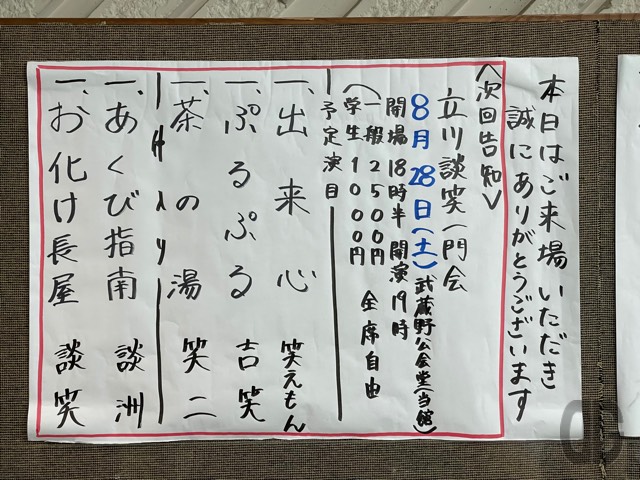 本日はご来場いただき
誠にありがとうございます
〈次回告知〉
立川談笑一門会
8月28日(土)武蔵野公会堂(当館)
開場18時半 開演19時
(一般2500円
学生1000円 全席自由
予定演目
一、出来心 笑えもん
一、ぷるぷる 吉笑
一、茶の湯 笑二
一仲入り
一、あくび指南 談洲
一、お化け長屋 談笑